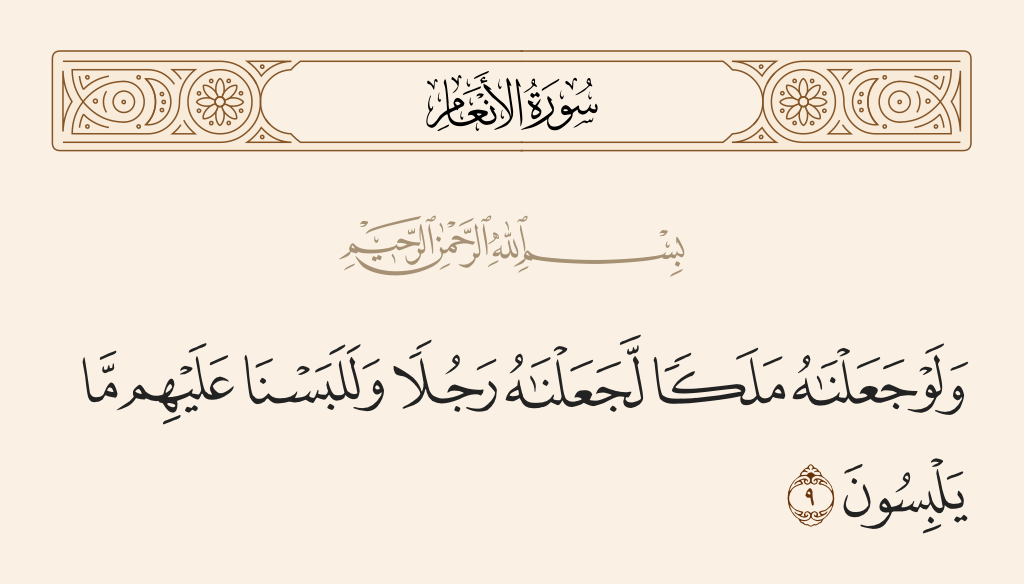 سُورَةُ الأَنْعَامِ
بِسْمِ ٱللَّهِ ٱلرَّحْمَٰنِ ٱلرَّحِيمِ
وَلَوْ جَعَلْنَٰهُ مَلَكًا لَّجَعَلْنَٰهُ رَجُلًا وَلَلَبَسْنَا عَلَيْهِم مَّا
يَلْبِسُونَ ٩